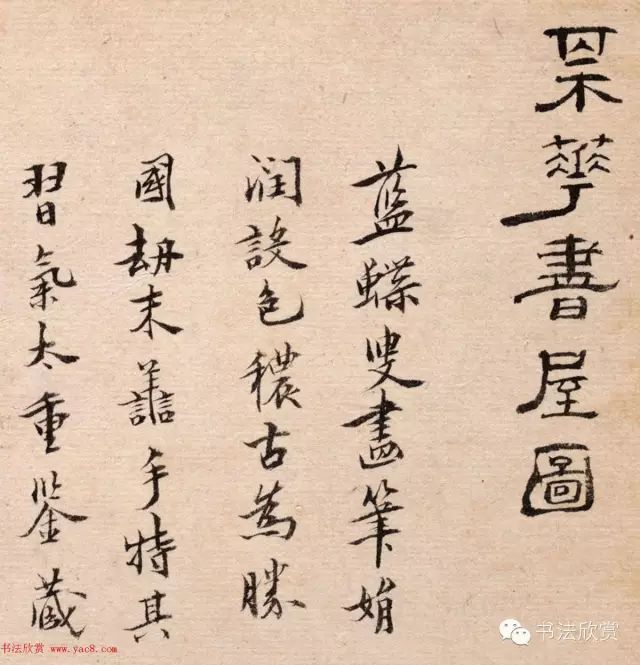 某華書屋圖
藍蝶叟畫筆娟
潤設色穠古為勝
國劫末譱手特其
習氣太重鑒藏
书法欣赏 www.yac8.com
书法欣赏